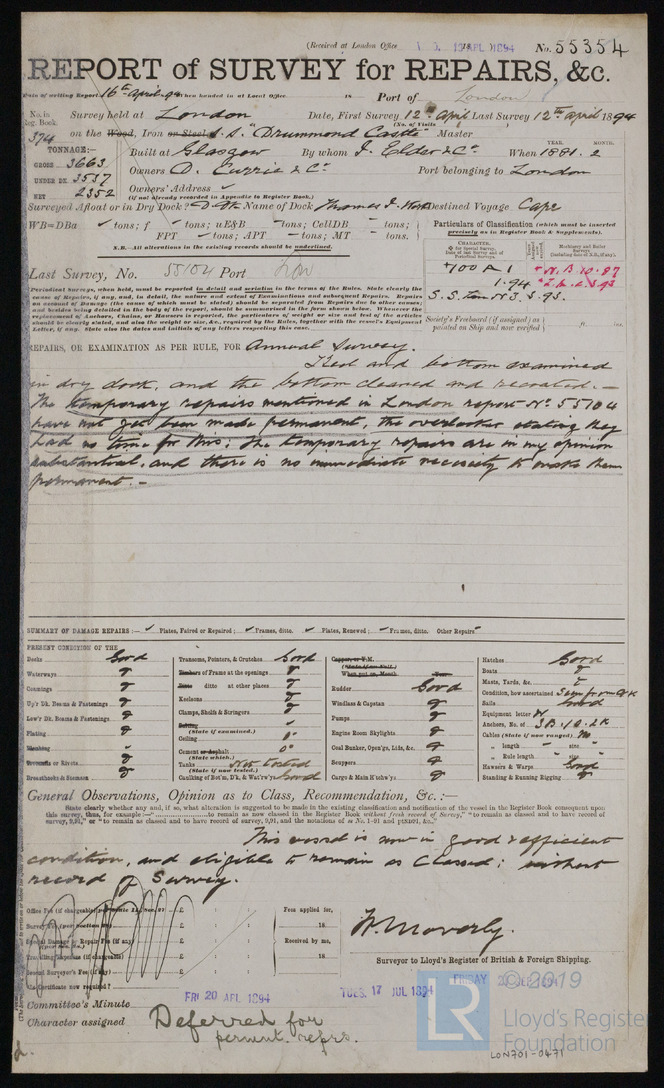 (Received at London Office 18 APL 1894 No. 55354
REPORT of SURVEY for REPAIRS, &c.
Date of writing Report 16th April 94 When handed in at Local Office 18 Port of London
No. in Reg. Book. 374 Survey held at London Date, First Survey 12th April Last Survey 12th April 1894
(No. of Visits )
on the Wood, Iron or Steel S.S. "Drummond Castle" Master
TONNAGE:— Built at Glasgow By whom J. Elder & Co. When 1881. 2
YEAR. MONTH.
GROSS 3663 Owners D. Currie & Co. Port belonging to London
UNDER DK. 3537
NET 2352 Owners' Address
(if not already recorded in Appendix to Register Book.)
Surveyed Afloat or in Dry Dock? Name of Dock Destined Voyage Cape
WB=DBa tons; f tons; uE&B tons; CellDB tons;
FPT tons; APT tons; MT tons.
N.B.—All alterations in the existing records should be underlined.
Particulars of Classification (which must be inserted
precisely as in Register Book & Supplements).
CHARACTER.
+100 A 1
1.94
S.S. Lon No 3. 3.93.
Last Survey, No. 55104 Port Lon
Society's Freeboard (if assigned) as
painted on Ship and now verified ft. ins.
Periodical Surveys, when held, must be reported in detail and seriatim in the terms of the Rules. State clearly the
cause of Repairs, if any, and, in detail, the nature and extent of Examinations and subsequent Repairs. Repairs
on account of Damage (the cause of which must be stated) should be separated from Repairs due to other causes;
and besides being detailed in the body of the report, should be summarised in the form shown below. Whenever the
replacement of Anchors, Chains, or Hawsers is reported, the particulars of weight or size and test of the articles
should be clearly stated, and also the weight or size, &c. required by the Rules, together with the vessel's Equipment
Letter, if any. State also the dates and initials of any letters respecting this case.
REPAIRS, OR EXAMINATION AS PER RULE, FOR Annual Survey.
Keel and bottom examined
in dry dock, and the bottom cleaned and recoated.—
The temporary repairs mentioned in London report No. 55104
have not yet been made permanent, the overlooker stating they
had no time for this; the temporary repairs are in my opinion
substantial, and there is no immediate necessity to make them
permanent.—
SUMMARY OF DAMAGE REPAIRS:— Plates, Faired or Repaired; Frames, ditto. Plates, Renewed; Frames, ditto. Other Repairs
PRESENT CONDITION OF THE
Decks Good
Waterways
Coamings
Up'r Dk. Beams & Fastenings
Low'r Dk. Beams & Fastenings
Plating
Sheathing
Treenails or Rivets
Breasthooks & Stemson
Transoms, Pointers, & Crutches Good
Timbers of Frame at the openings
Ditto ditto at other places
Keelsons
Clamps, Shelfs & Stringers
Salting
(State if examined.)
Ceiling
Cement or Asphalt
(State which.)
Tanks Not tested
(State if now tested.)
Caulking of Bot'm, D'k, & Wat'rw'ys Good
Copper, or Y.M.
When put on, Month Year
Rudder Good
Windlass & Capstan
Pumps
Engine Room Skylights
Coal Bunker, Open'gs, Lids, &c.
Scuppers
Cargo & Main H'tchw'ys
Hatches Good
Boats
Masts, Yards, &c.
Condition, how ascertained Seen from dk
Sails Good
Equipment letter
Anchors, No. of 3B. 1 S. 2K
Cables (State if now ranged) No
„ length size
„ Rule length size
Hawsers & Warps Good
Standing & Running Rigging
General Observations, Opinion as to Class, Recommendation, &c. :—
State clearly whether any and, if so, what alteration is suggested to be made in the existing classification and notification of the vessel in the Register Book consequent upon
this survey, thus, for example:—"..................to remain as now classed in the Register Book without fresh record of Survey," "to remain as classed and to have record of
survey, 9,91," or "to remain as classed and to have record of survey, 9,91, and the notations of
This vessel is now in good & efficient
condition, and eligible to remain as Classed; without
record of Survey.
Office Fee (if chargeable) £ : : Fees applied for,
£ : : 18
Special Damage or Repair Fee (if any) £ : : Received by me,
Travelling Expenses (if chargeable) £ : : 18
Second Surveyor's Fee (if any) £ : :
Is Certificate now required?
W Moverly.
Surveyor to Lloyd's Register of British & Foreign Shipping.
Committee's Minute FRI 20 APL 1894 TUES. 17 JUL 1894 FRIDAY
Character assigned Deferred for
permt. reprs.
LR
© 2019
Lloyd's Register
Foundation
LON701-0471